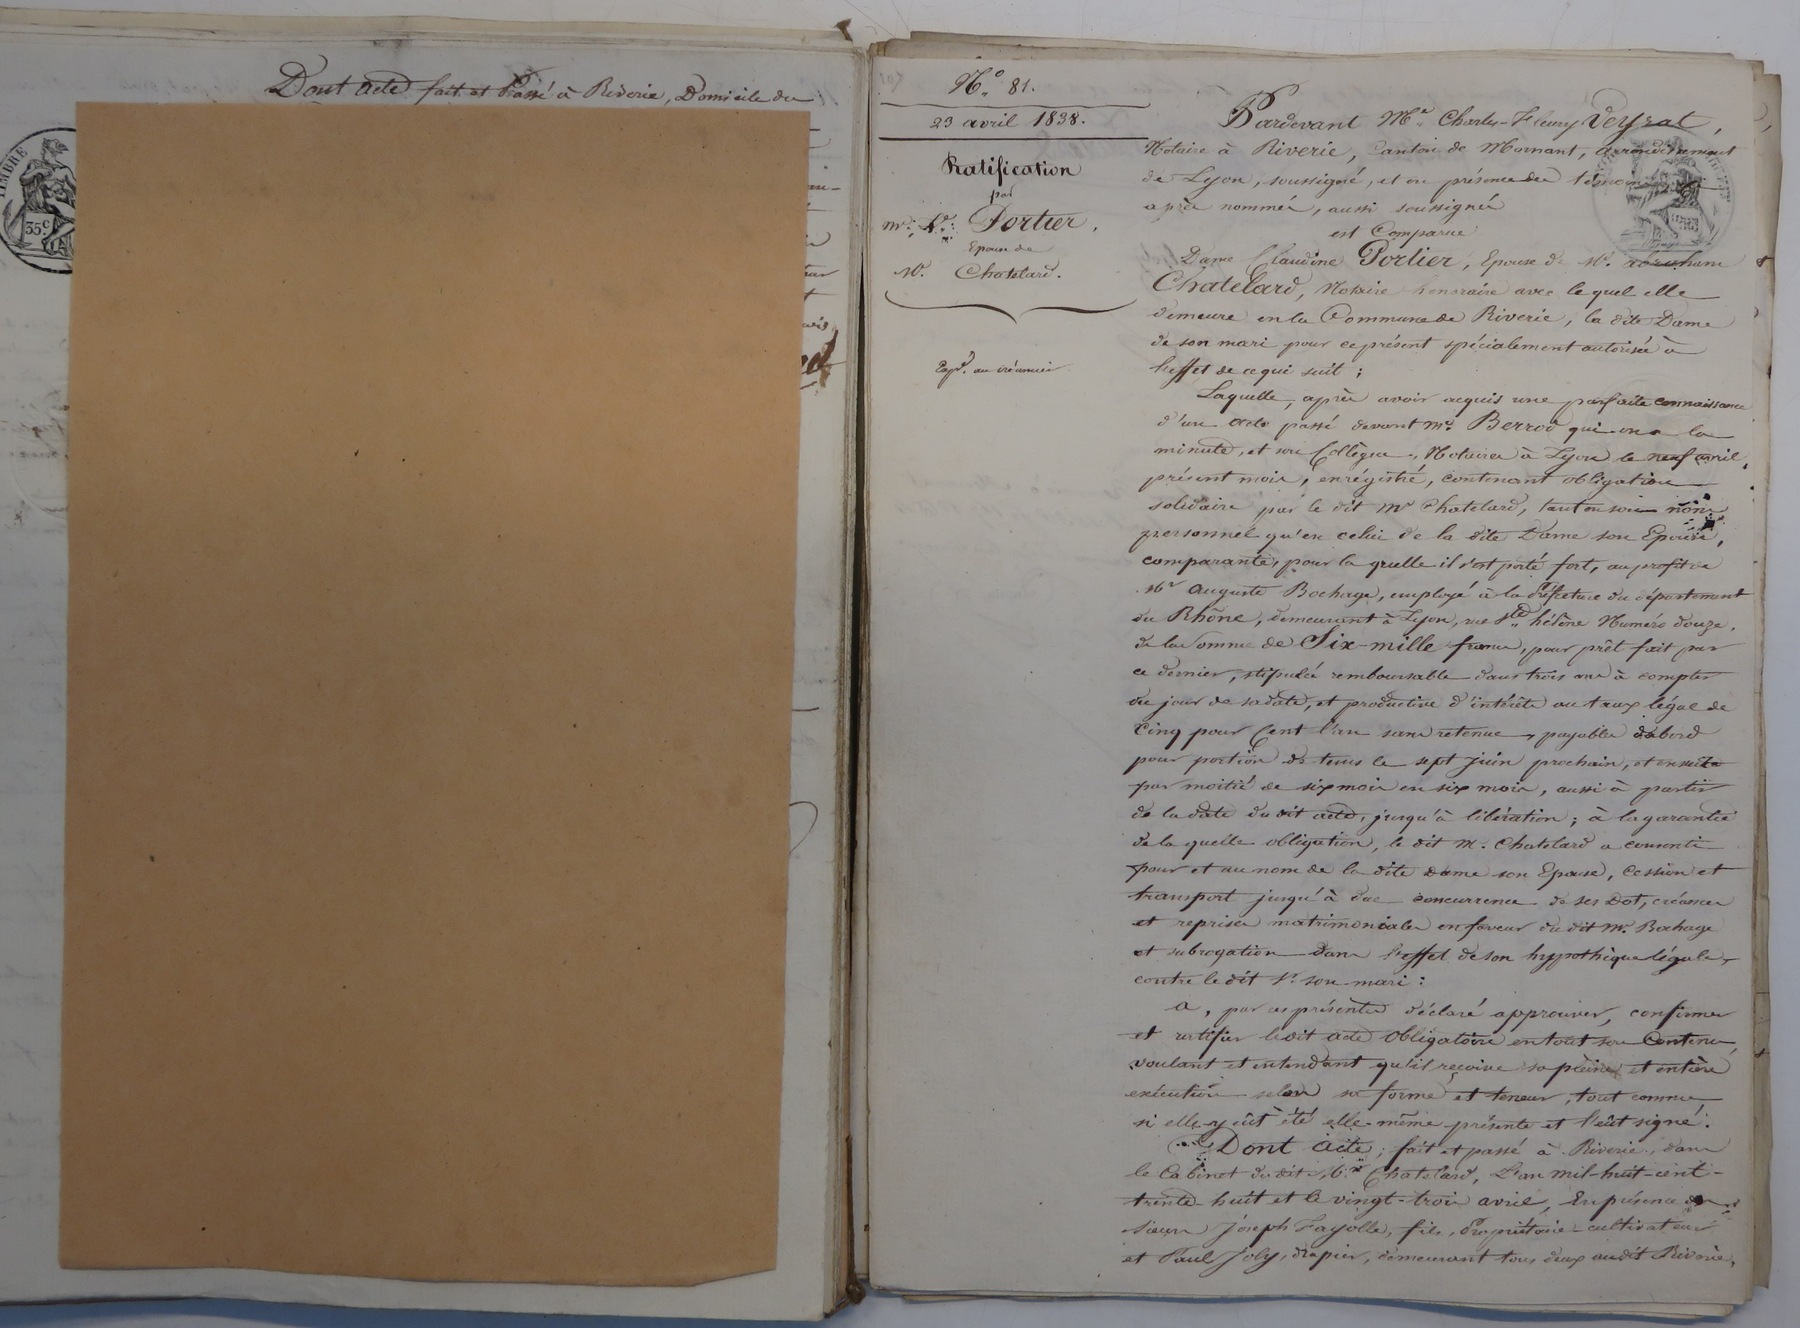 Dont acte fait et Passé à Riverie, Domicile du
TIMBRE
35c
N.° 81.
23 avril 1838.
Ratification
par
Portier,
Epouse de
Mr. Chatelard.
Pardevant Me. Charles-Fleury Veyrat,
Notaire à Riverie, Canton de Mornant, arrondissement
de Lyon, soussigné, et en présence des témoins
après nommés, aussi soussignés
est Comparue
Dame Claudine Portier, Epouse de Mr. Abraham
Chatelard, Notaire honoraire avec lequel elle
demeure en la Commune de Riverie, la dite Dame
de son mari pour ce présent spécialement autorisée à
l'effet de ce qui suit ;
Laquelle, après avoir acquis une parfaite connaissance
d'un acte passé devant me. Berrod qui en a la
minute, et son Collègue, Notaires à Lyon le neuf avril,
présent mois, enrégistré, contenant obligation
solidaire par le dit Mr Chatelard, tant en son nom
personnel qu'en celui de la dite Dame son Epouse,
comparante, pour la quelle il s'est porté fort, au profit de
Mr Auguste Bochage, employé à la Préfecture du département
du Rhône, demeurant à Lyon, rue Ste hélène Numéro douze,
de la Somme de Six-mille francs, pour prêt fait par
ce dernier, stipulée remboursable dans trois ans à compter
du jour de sa date, et productive d'intérêts au taux légal de
Cinq pour Cent l'an sans retenue, payables d'abord
pour portion de tems le sept juin prochain, et ensuite
par moitié de six mois en six mois, aussi à partir
de la date du dit acte, jusqu'à libération ; à la garantie
de la quelle obligation, le dit M. Chatelard a consenti
pour et au nom de la dite Dame son Epouse, Cession et
transport jusqu'à due concurrence de ses Dot, créances
et reprises matrimoniales en faveur du dit Mr. Bochage
et subrogation dans l'effet de son hypothèque légale,
contre le dit Sr. son mari :
a, par ces présentes déclaré approuver, confirmer
et ratifier le dit acte Obligatoire en tout son Contenu,
voulant et entendant qu'il reçoive sa pleine et entière
exécution selon sa forme et teneur, tout comme
si elle y eût été elle-même présente et l'eût signé.
Dont acte, fait et passé à Riverie, dans
le Cabinet du dit Mr Chatelard, L'an mil-huit-cent-
trente-huit et le vingt-trois avril, En présence de
sieurs Joseph Fayolle, fils, Propriétaire-cultivateur
et Paul Joly, drapier, demeurant tous deux audit Riverie,